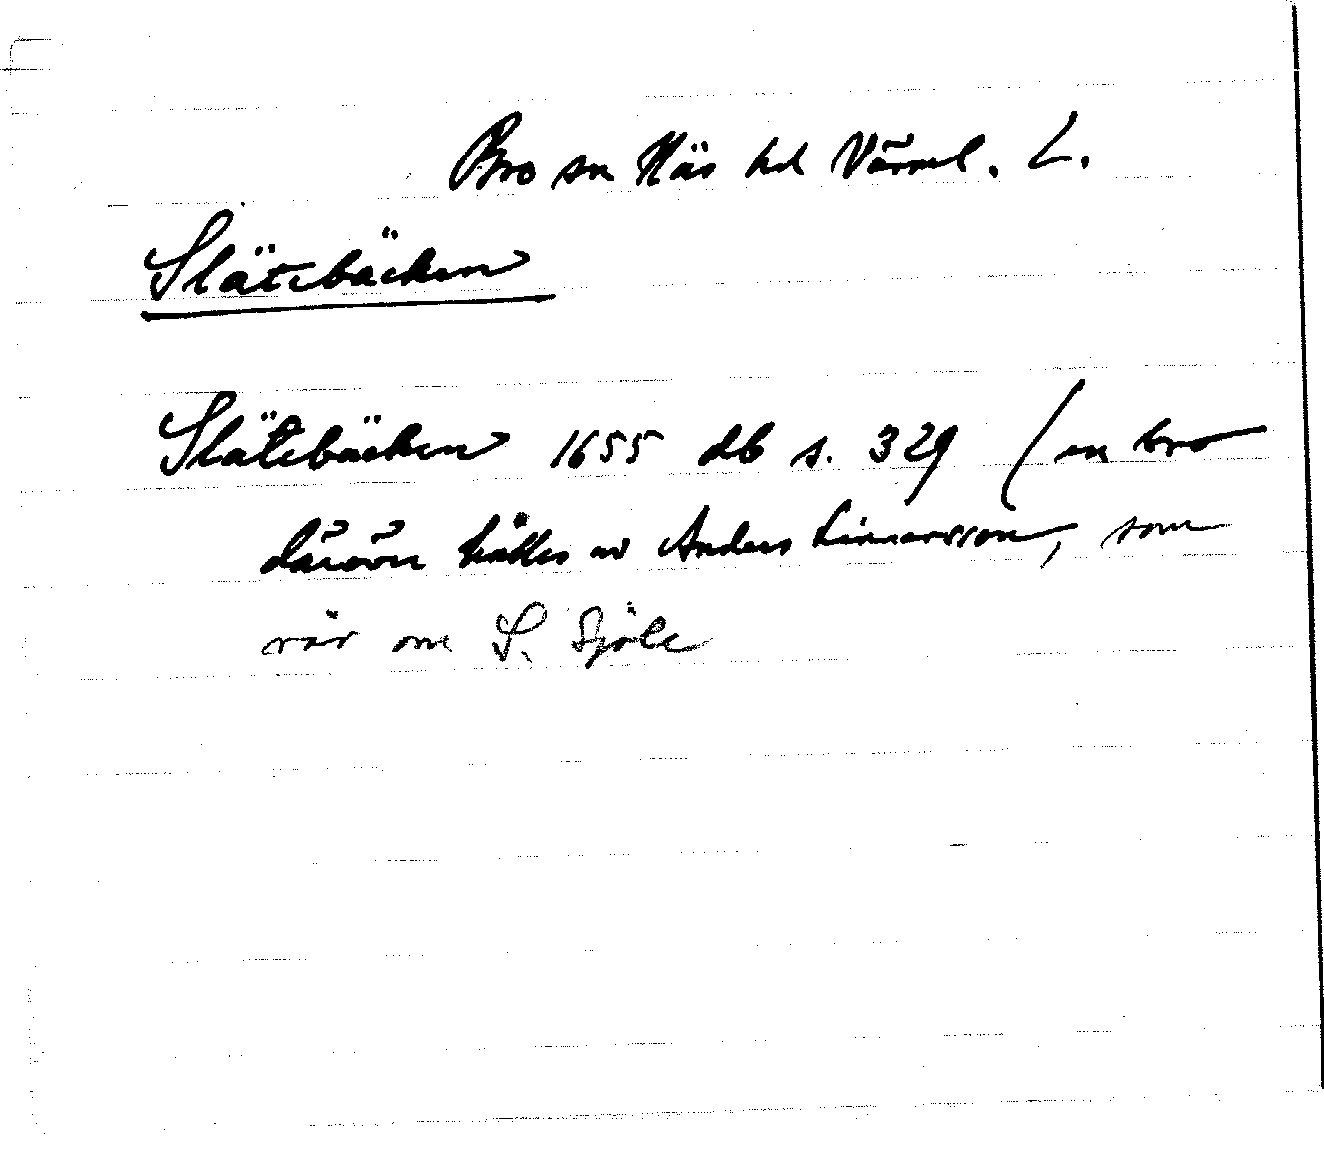 Bro sn Näs hd Värml. L.
Slätebäcken
Slätebäcken 1655 db s. 329 (en bro
däröver hålles av Anders Linnarsson, som
rår om S. Sjöle